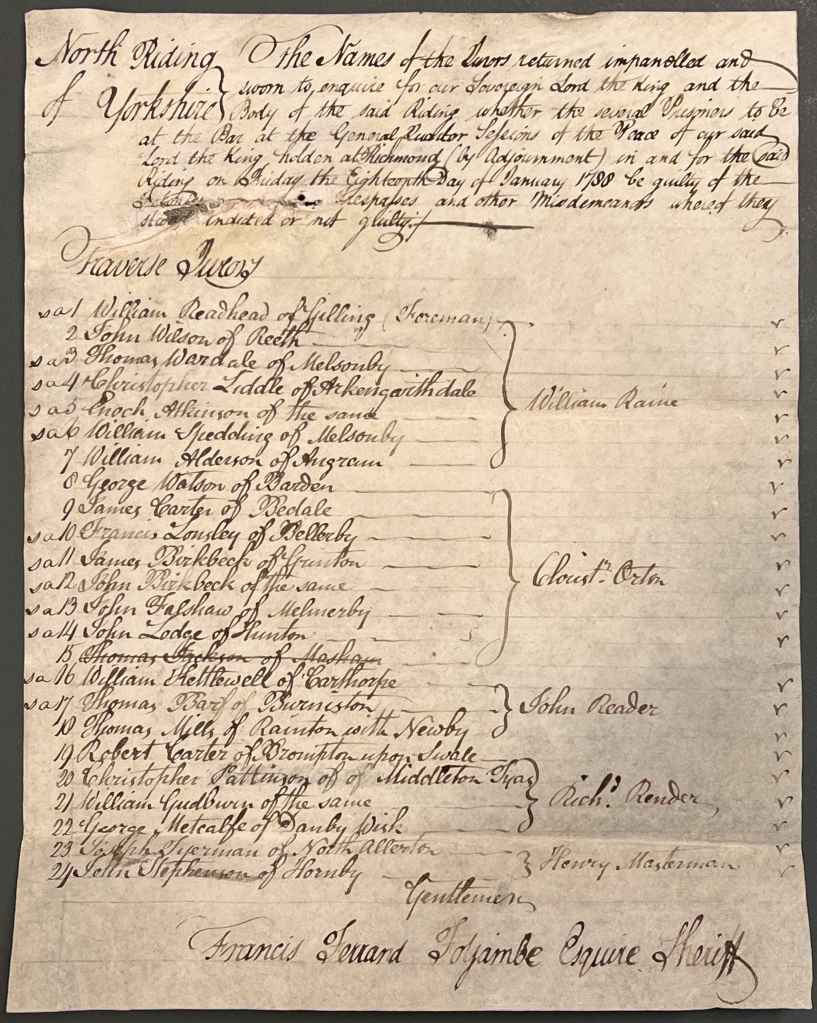 North Riding of Yorkshire } The Names of the Jurors returned impanelled and
sworn to enquire for our Sovereign Lord the King and the
Body of the said Riding whether the several Prisoners to be
at the Bar at the General Quarter Sessions of the Peace of our said
Lord the King holden at Richmond (by Adjournment) in and for the said
Riding on Friday the Eighteenth Day of January 1788 be guilty of the
Trespasses and other Misdemeanors whereof they
stand indicted or not guilty
Traverse Jurors
sa 1 William Readhead of Gilling (Foreman)
2 John Wilson of Reeth
sa 3 Thomas Wardale of Melsonby
sa 4 Christopher Liddle of Arkengarthdale
sa 5 Enoch Atkinson of the same
William Raine
sa 6 William Spedding of Melsonby
7 William Alderson of Angram
8 George Watson of Barden
9 James Carter of Bedale
sa 10 Francis Lonsley of Bellerby
sa 11 James Birkbeck of Grinton
Christr. Orton
sa 12 John Birkbeck of the same
sa 13 John Falshaw of Melmerby
sa 14 John Lodge of Hunton
15 Thomas Jackson of Masham
sa 16 William Kettlewell of Carthorpe
sa 17 Thomas Barf of Burniston
John Reader
18 Thomas Mills of Rainton with Newby
19 Robert Carter of Brompton upon Swale
20 Christopher Pattinson of of Middleton Tyas
21 William Gudburn of the same
Richd. Render
22 George Metcalfe of Danby Wisk
23 Joseph Tyerman of North Allerton
Henry Masterman
24 John Stephenson of Hornby
Gentlemen
Francis Ferrard Foljambe Esquire Sheriff